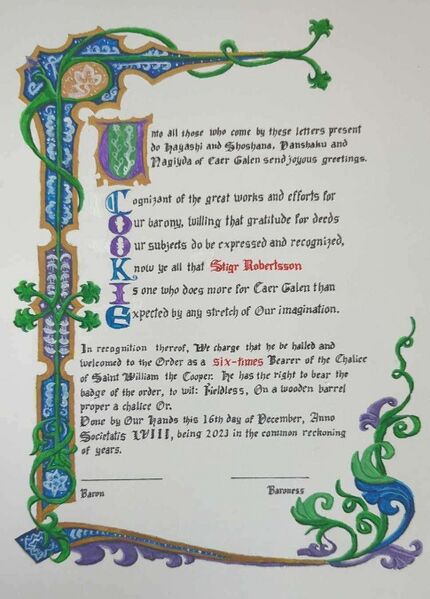 Unto all those who come by these letters present
do Hayashi and Shoshana, Danshaku and
Nagiyda of Caer Galen send joyous greetings.
Cognizant of the great works and efforts for
Our barony, willing that gratitude for deeds
Our subjects do be expressed and recognized,
Know ye all that Stigr Robertsson
Is one who does more for Caer Galen than
Expected by any stretch of Our imagination.
In recognition thereof, We charge that he be hailed and
welcomed to the Order as a six-times Bearer of the Chalice
of Saint William the Cooper. He has the right to bear the
badge of the order, to wit: Fieldless, On a wooden barrel
proper a chalice Or.
Done by Our Hands this 16th day of December, Anno
Societatis LVIII, being 2023 in the common reckoning
of years.
Baron Baroness